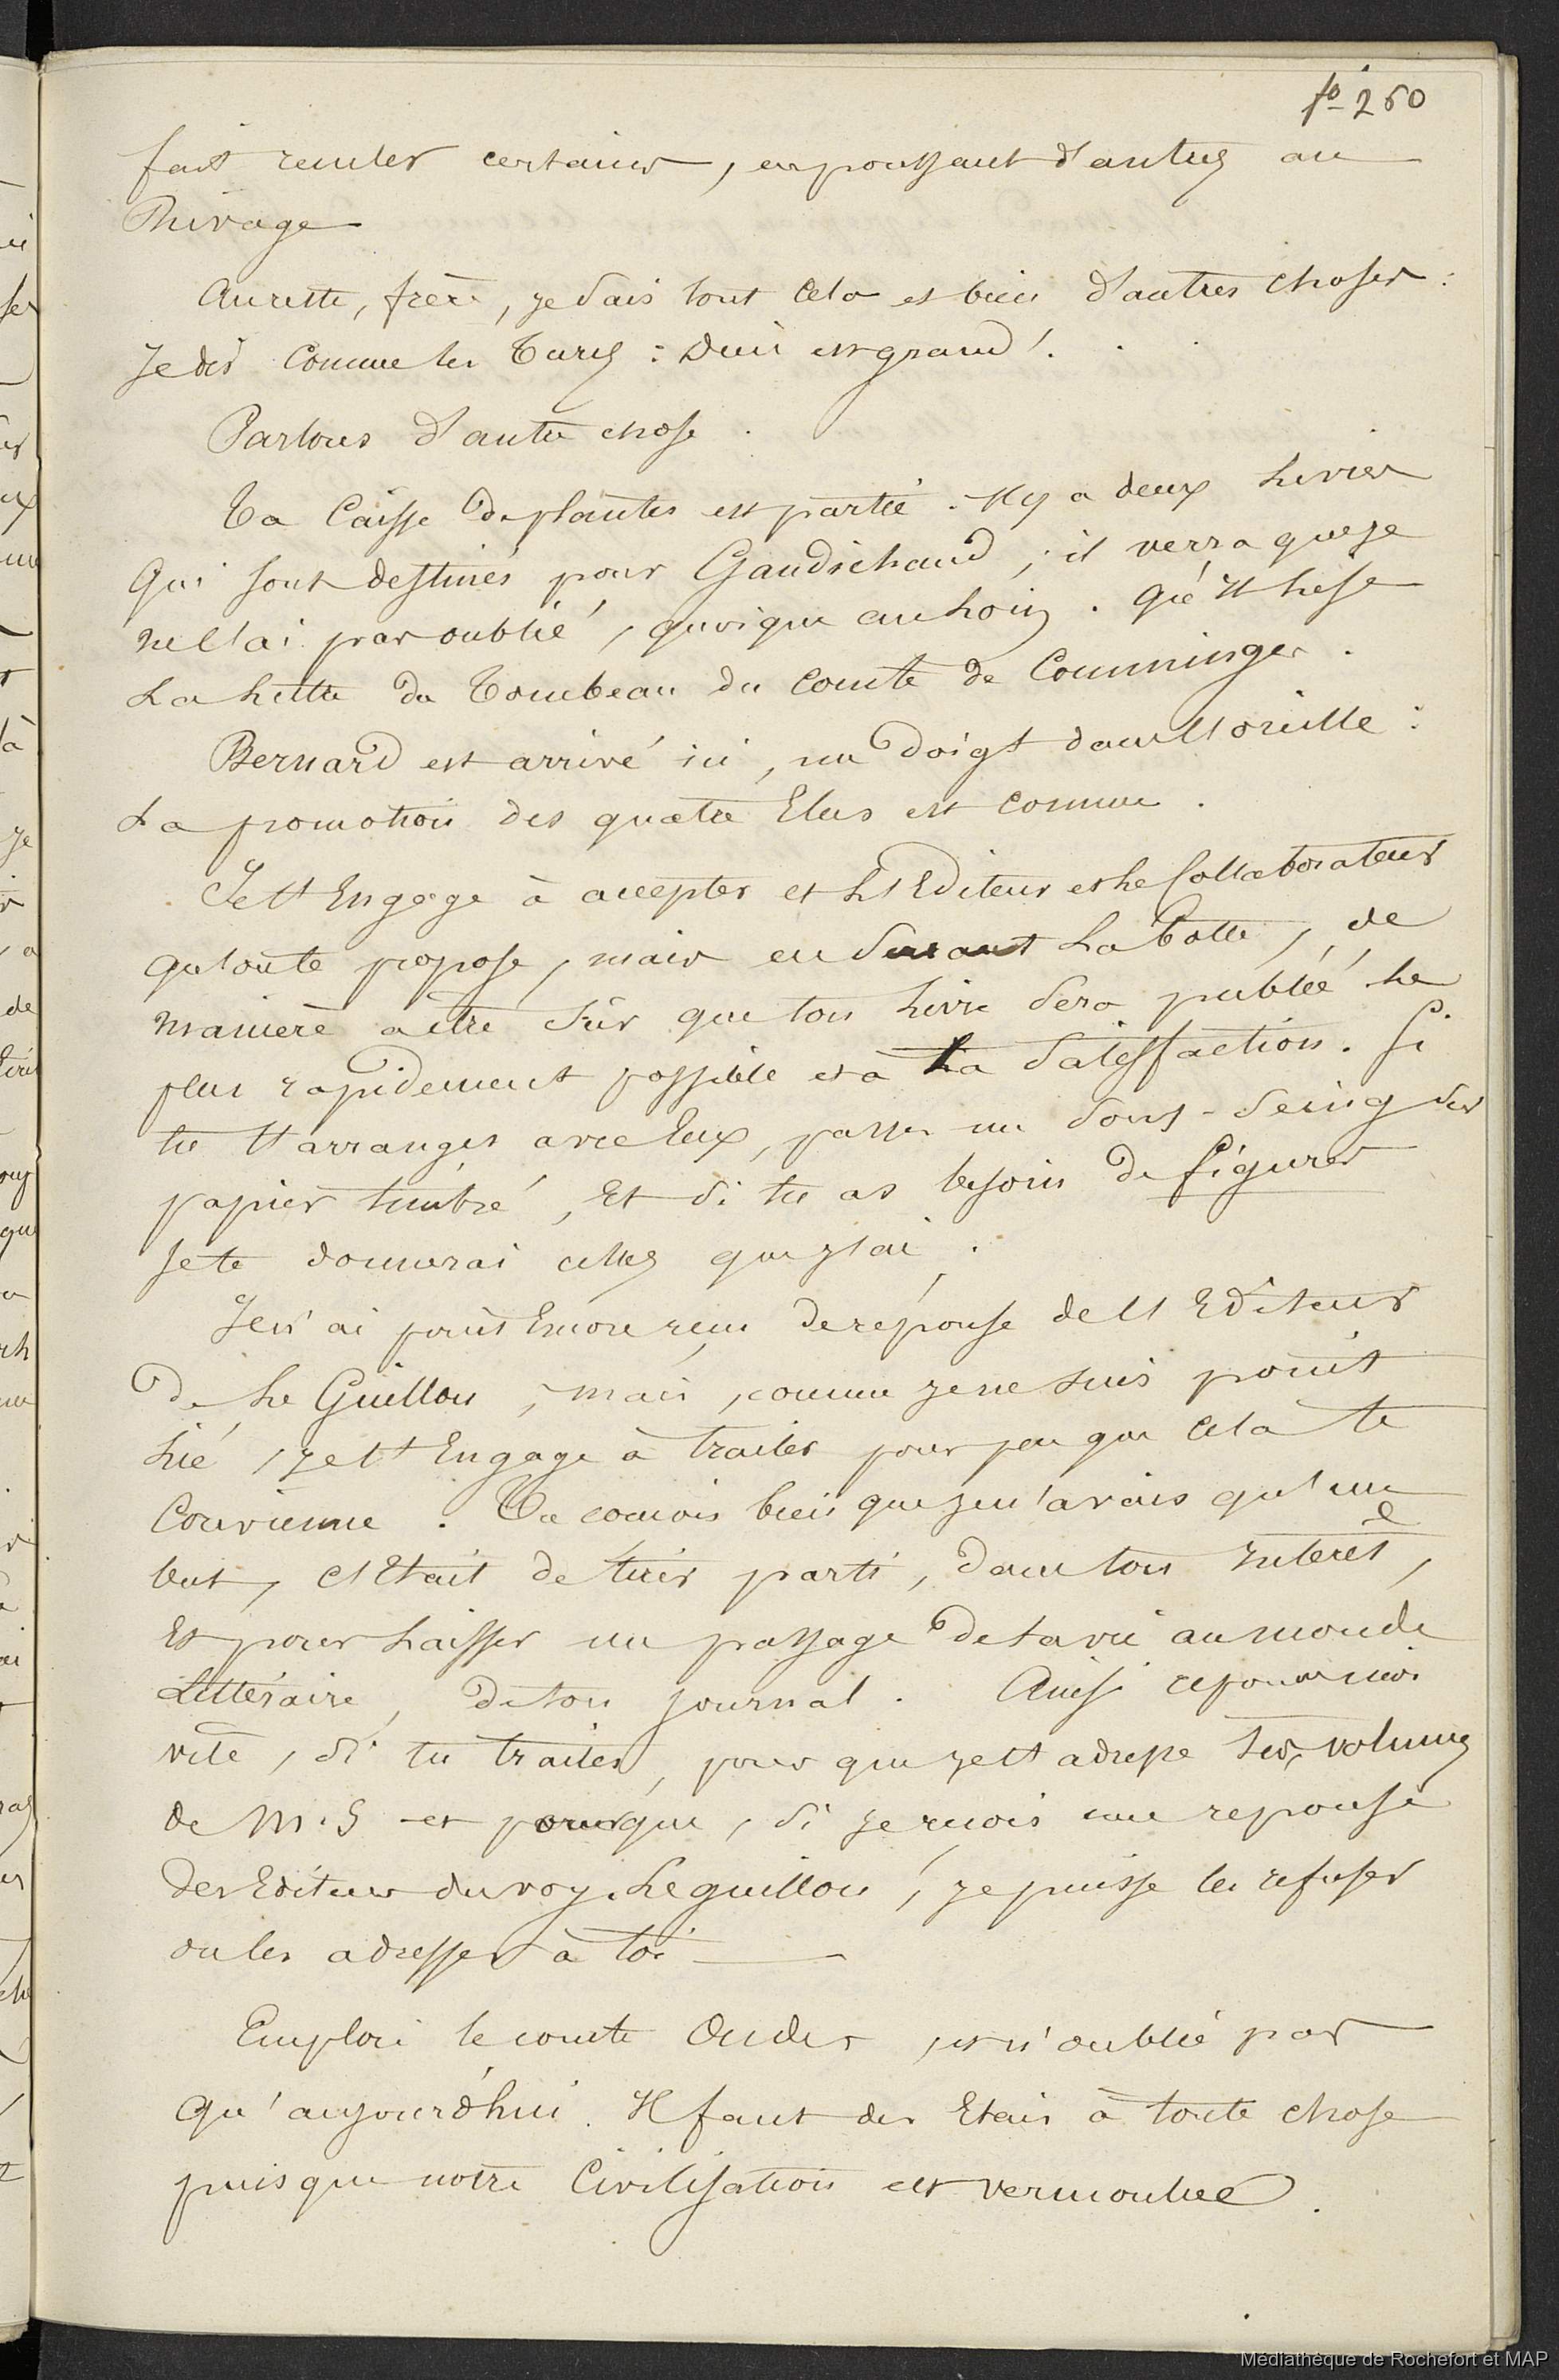 fo 260
fait reculer certains, en poussant d'autres au
Rivage
Aureste, frère, je sais tout cela et bien d'autres choses :
Je dis comme les Turcs : Dieu est grand !. . .
Parlons d'autre chose .
Ta Caisse de plantes est partie . Il y a deux Livres
Qui sont destinés pour Gaudichaud ; il verra que je
ne l'ai pas oublié, quoique au loin . Qu'il lise
La Lettre du Tombeau du Comte de Comminges .
Bernard est arrivé ici, un doigt dans l'oreille :
La promotion des quatre Elus est connue .
Je t'Engage à accepter et L'Editeur et le Collaborateur
qu'on te propose, mais en serrant la botte, de
manière à être sûr que ton Livre sera publié le
plus rapidement possible et à ta satisfaction. Si
tu t'arranges avec Eux, passer un sous-seing sur
papier timbré, Et si tu as besoin de figures
je te donnerai celles que j'ai .
Je n'ai point Encore reçu de réponse de l'Editeur
De Le Guillou ; mais, comme je ne suis point
Lié, je t'Engage à traiter pour peu que cela te
Convienne . Tu conçois bien que je n'avais qu'un
but, c'Etait de tirer parti, dans ton Interêt,
Et pour Laisser un passage de ta vie au monde
Littéraire, de ton journal . Ainsi réponds moi
vite, si tu traites, pour que je t'adresse tes volumes
de M.S et pour que, si je reçois une réponse
Des Editeurs du voy. Leguillou, je puisse les refuser
ou les adresser à toi
Emploi le comte Oudes, et n'oublie pas
Qu'aujourd'hui Il faut des Etais à toute chose
puisque notre Civilisation est vermoulue .
Médiathèque de Rochefort et MAP